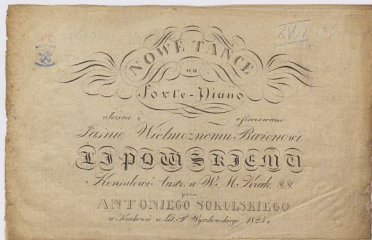 NOWE TAŃCE
na
Forte-Piano
ułożone i ofiarowane
Jaśnie Wielmożnemu Baronowi
LIPOWSKIEMU
Konsulowi Austr. w W. M. Krak. &&
przez
ANTONIEGO SOKULSKIEGO
w Krakowie w Lit. P. Wyszkowskiego 1825 r.